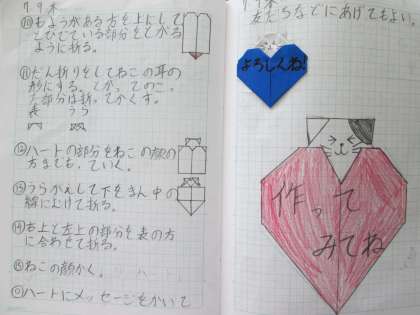 7.9 木
⑩もようがある方を上にして
とびでている部分をとがる
ように折る。
⑪だん折りをしてねこの耳の
形にする。
部分は折ってかくす。
表 うら
⑫ハートの部分をねこの顔の
方までもっていく。
⑬うらがえして下をまん中の
線にむけて折る。
⑭右上と左上の部分を表の方
に合わせて折る。
⑮ねこの顔かく。
⑯ハートにメッセージをかいて
友だちなどにあげてもよい。
よろしくね!
作って
みてね